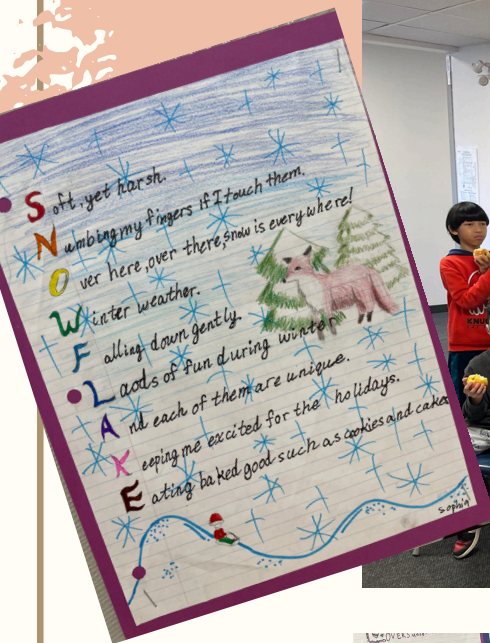 Soft, yet harsh.
Numbing my fingers if I touch them.
Over here, over there, snow is everywhere!
Winter weather.
Falling down gently.
Laods of fun during winter
And each of them are unique.
Keeping me excited for the holidays.
Eating baked good such as cookies and cakes
Sophia
KNU
OVERS